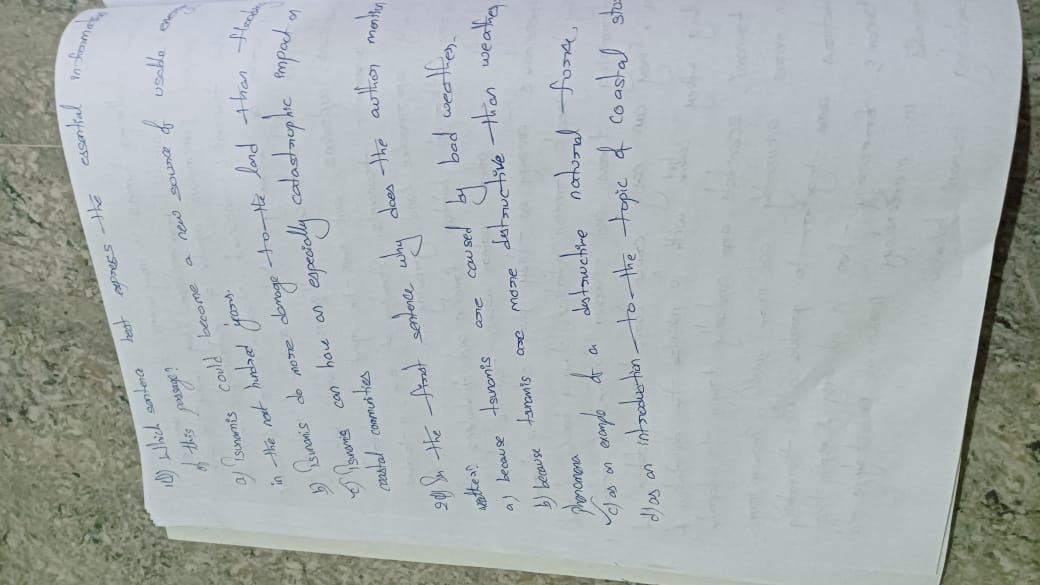 1Q) Which sentence best express the essential information
of this passage?
a) Tsunamis could become a new source of usable energy
in the next hundred years.
b) Tsunamis do more damage to the land than flooding
c) Tsunamis can have an especially catastrophic impact on
coastal communities
2Q) In the first sentence why does the author mention
weather?
a) because tsunamis are caused by bad weather.
b) because tsunamis are more destructive than weather
phenomena
c) as an example of a destructive natural force.
d) as an introduction to the topic of coastal